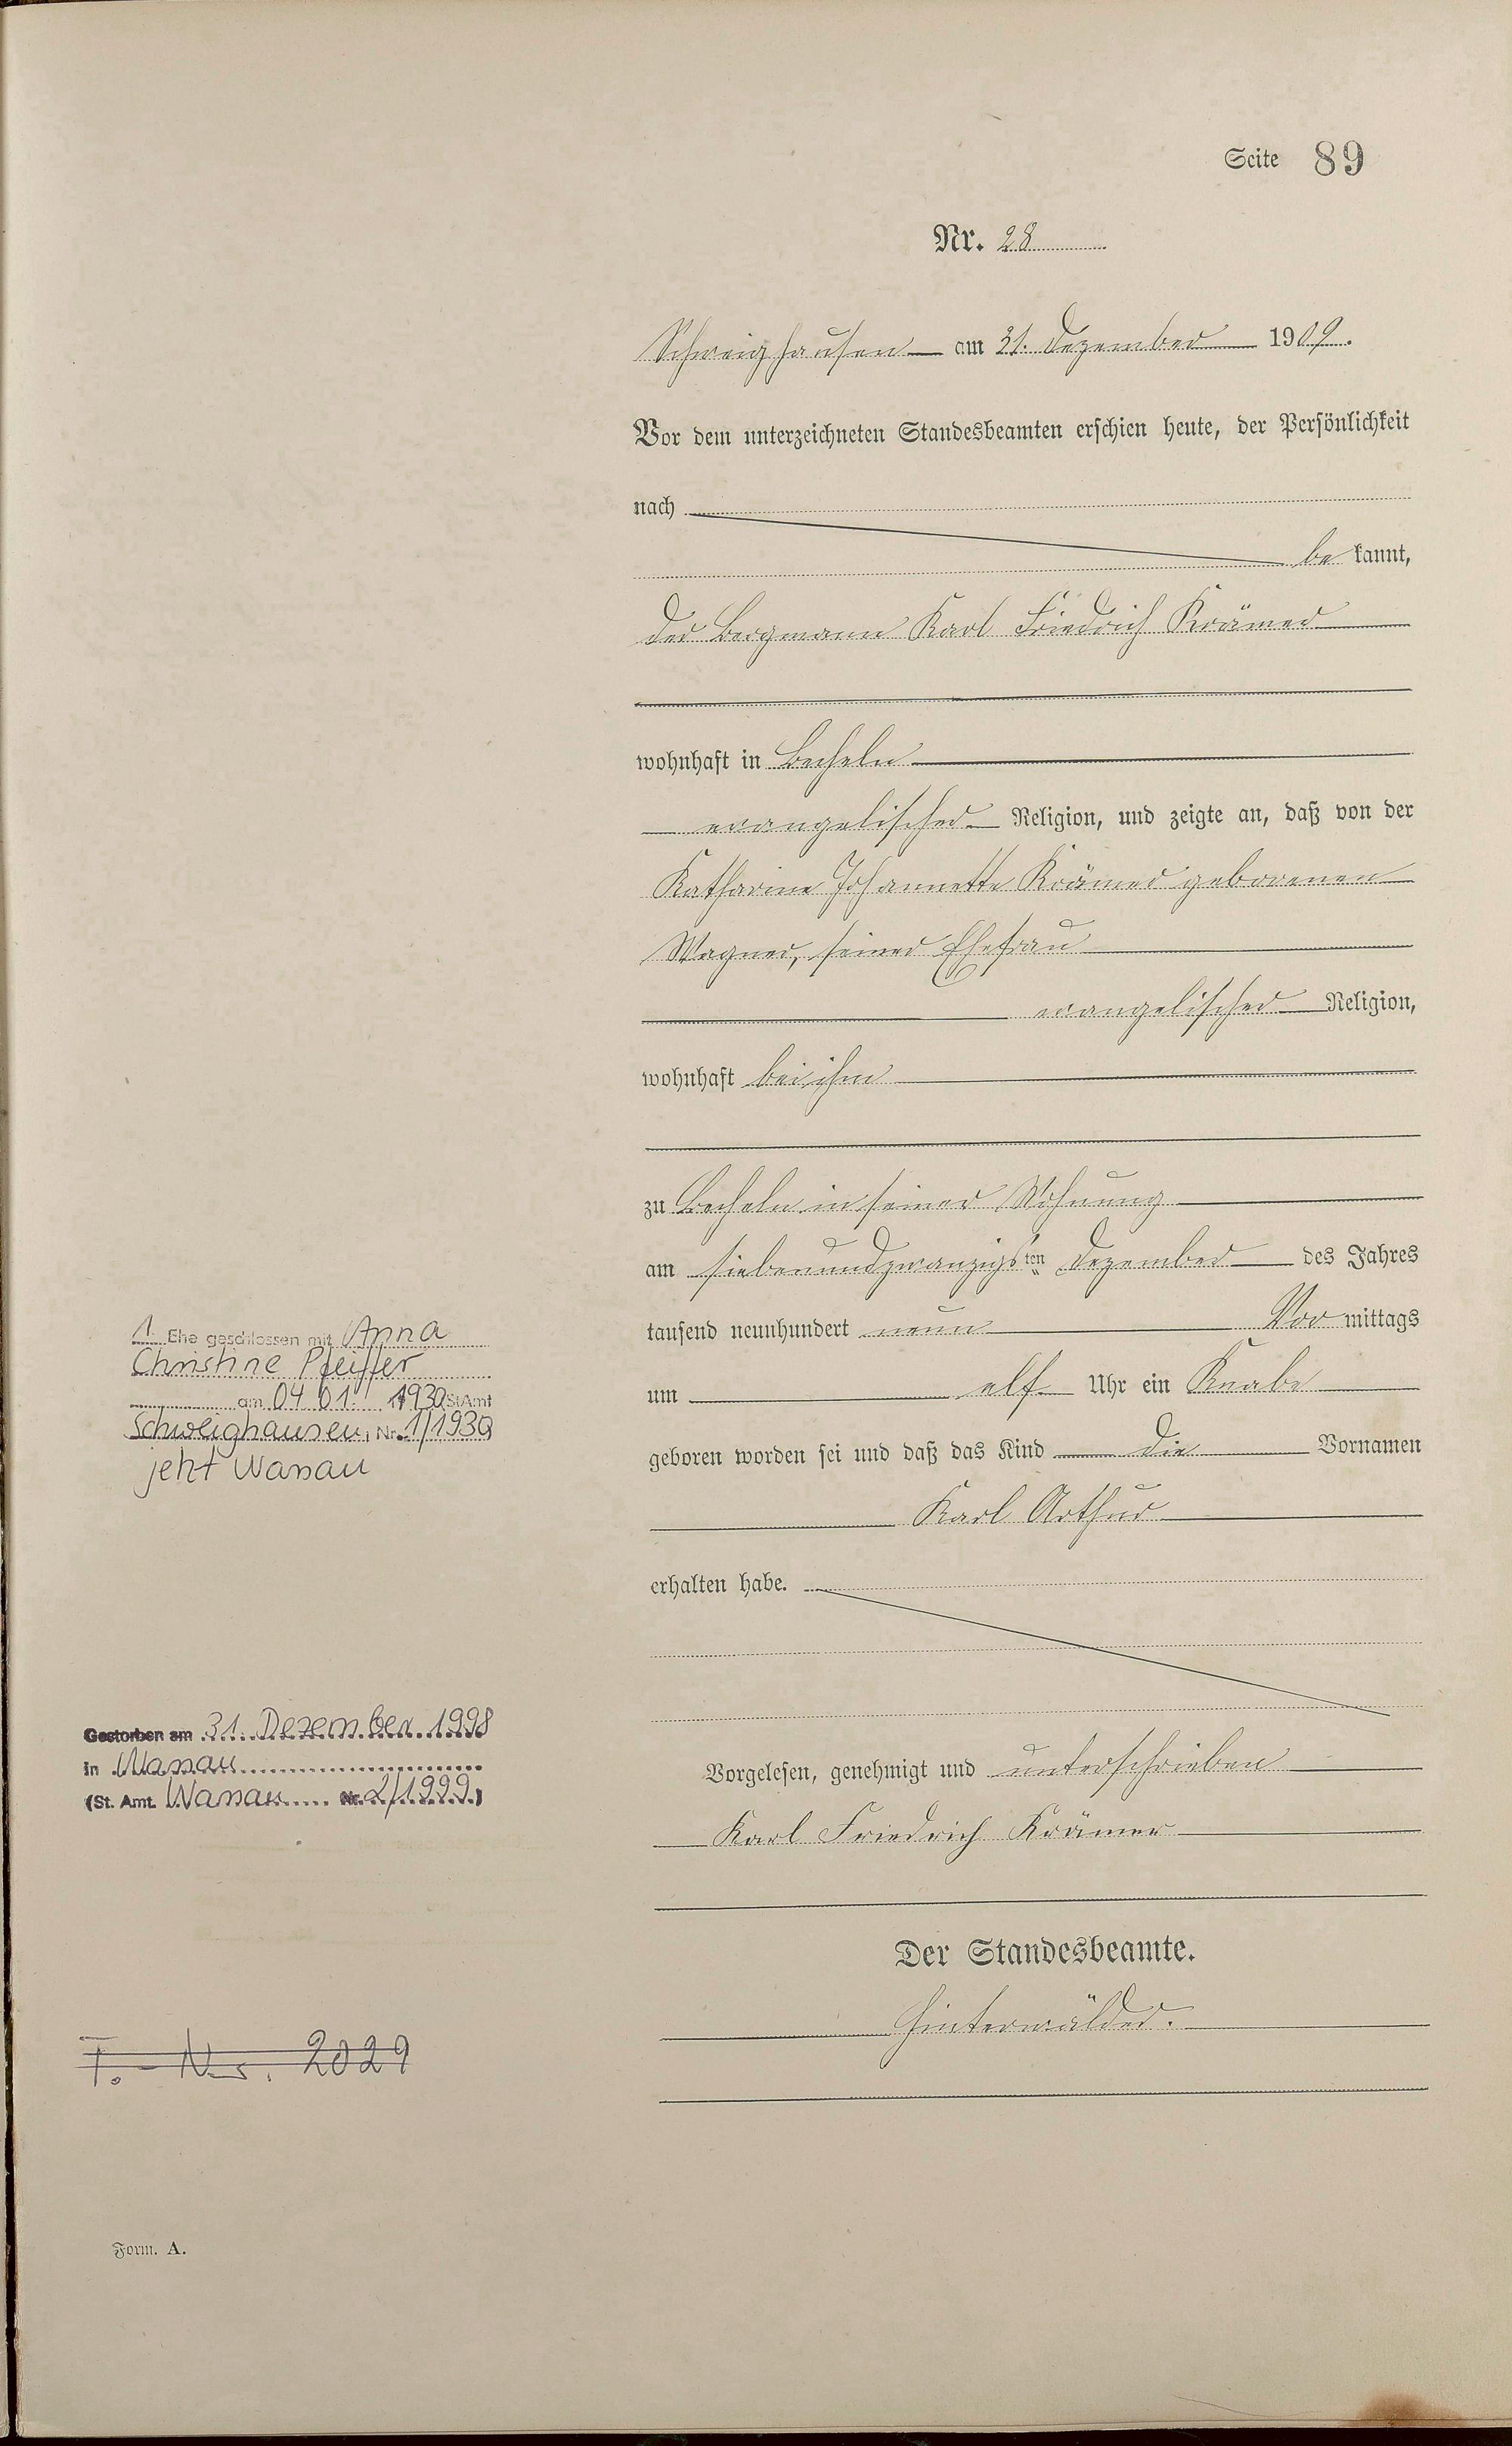 Seite 89
Nr. 28
Schweighausen am 31. Dezember 1909.
Vor dem unterzeichneten Standesbeamten erschien heute, der Persönlichkeit
nach
be kannt,
der Bergmann Karl Friedrich Krämer
wohnhaft in Becheln
evangelischer Religion, und zeigte an, daß von der
Katharine Johannette Krämer geborenen
Wagner, seiner Ehefrau
evangelischer Religion,
wohnhaft bei ihm
zu Becheln in seiner Wohnung
am siebenundzwanzigsten Dezember des Jahres
tausend neunhundert neun Vor mittags
um elf Uhr ein Knabe
geboren worden sei und daß das Kind die Vornamen
Karl Arthur
erhalten habe.
Vorgelesen, genehmigt und unterschrieben
Karl Friedrich Krämer
Der Standesbeamte.
Hinterwälder.
1. Ehe geschlossen mit Anna
Christine Pfeiffer
am 04 01. 1930 StAmt
Schweighausen, Nr. 1/1930
jetzt Nassau
Gestorben am 31. Dezember 1998
in Nassau
(St. Amt. Nassau Nr. 2/1999)
T. - Nr. 2029
Form. A.